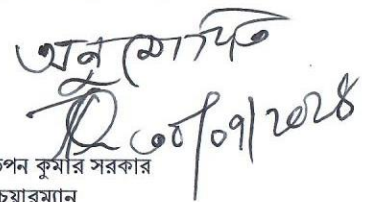 অনুমোদিত
৩০/০৭/২০২৪
তপন কুমার সরকার
চেয়ারম্যান